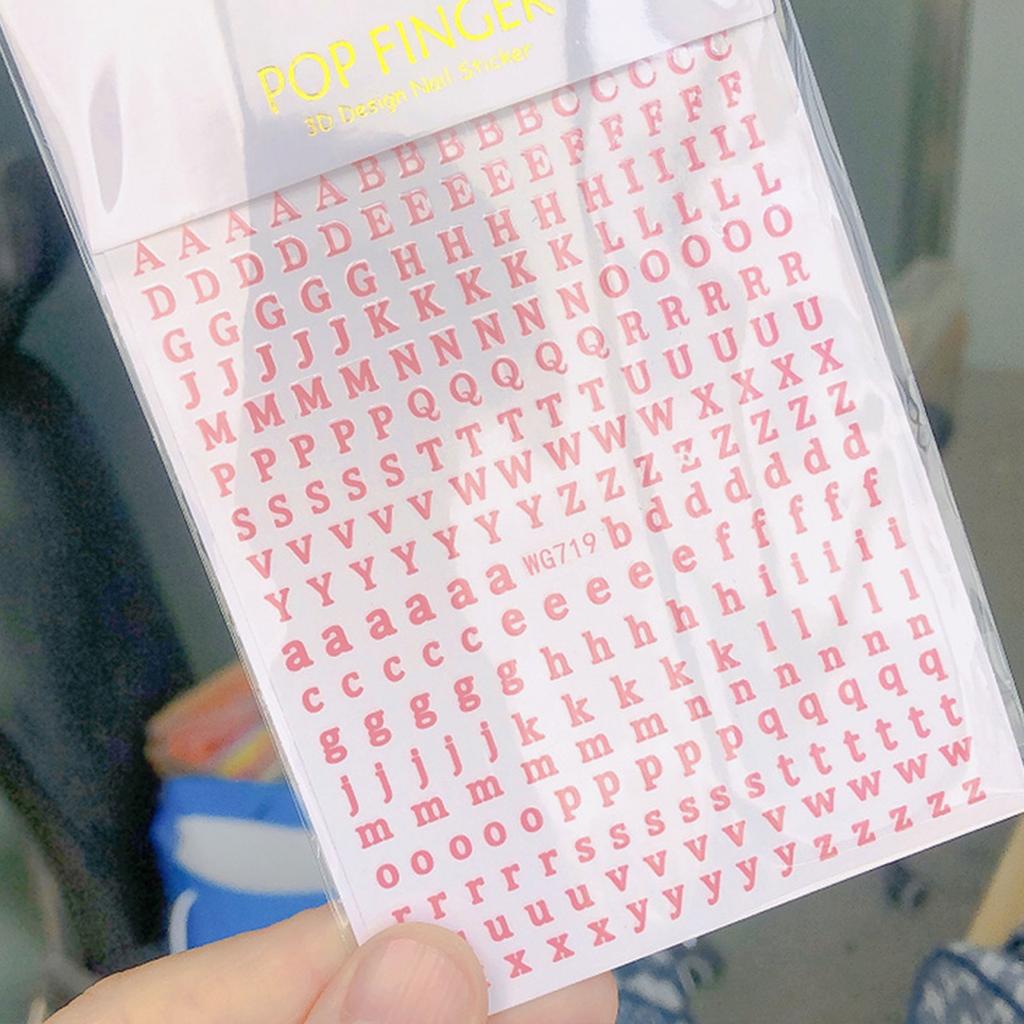 POP FINGER
3D Design Nail Sticker
A A A A A B B B B B C C C C C
D D D D D E E E E E F F F F F
G G G G G H H H H H I I I I I
J J J J J K K K K K L L L L L
M M M M N N N N N O O O O O
P P P P P Q Q Q Q Q R R R R R
S S S S S T T T T T U U U U U
V V V V V W W W W W X X X X
Y Y Y Y Y Y Y Z Z Z Z Z Z Z
a a a a a a WG719 b d d d d d d
c c c c c e e e e e f f f f f
g g g g g h h h h h i i i i i
j j j j j k k k k k l l l l l
m m m m m n n n n n
o o o o o p p p p p q q q q q
r r r r r s s s s s t t t t t
u u u v v v v v w w w w
x x x y y y y y z z z z z